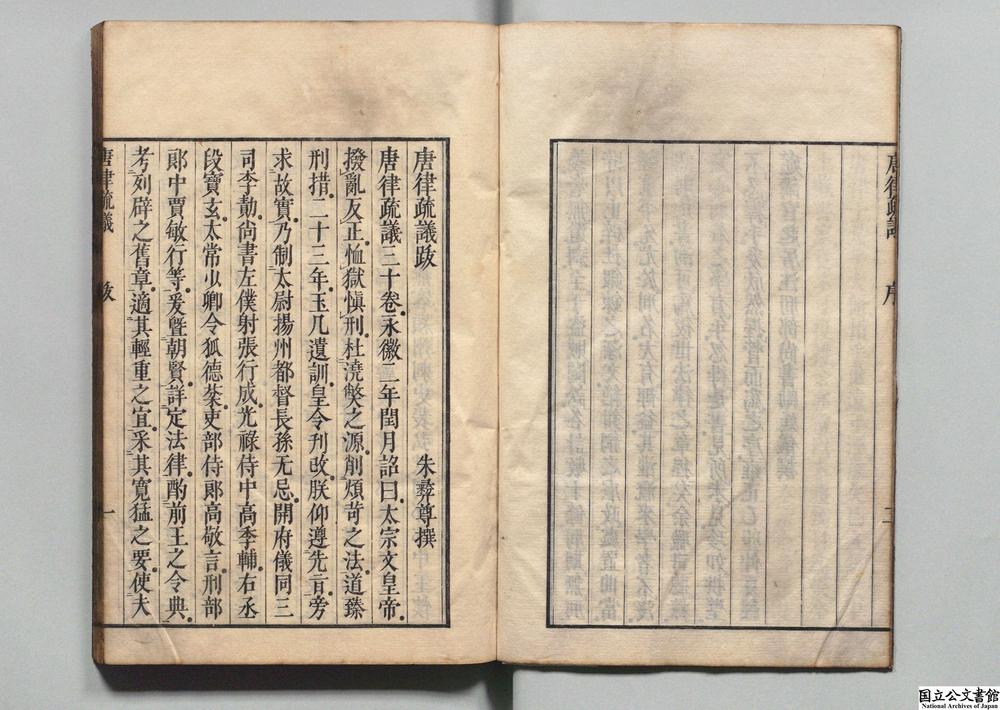 唐律疏議 序 二
唐律疏議跋 朱彝尊撰
唐律疏議三十卷。永徽二年閏月詔曰。太宗文皇帝。
撥亂反正。恤獄愼刑。杜澆獘之源。削煩苛之法。道臻
刑措。二十三年。玉几遺訓。皇令刊改。朕仰遵先旨。旁
求故實。乃制太尉揚州都督長孫无忌。開府儀同三
司李勣。尚書左僕射張行成。光祿侍中高季輔。右丞
段寶玄。太常少卿令狐德棻。吏部侍郎高敬言。刑部
郎中賈敏行等。爰曁朝賢。詳定法律。酌前王之令典。
考列辟之舊章。適其輕重之宜。采其寛猛之要。使夫
唐律疏議 跋 一
国立公文書館
National Archives of Japan